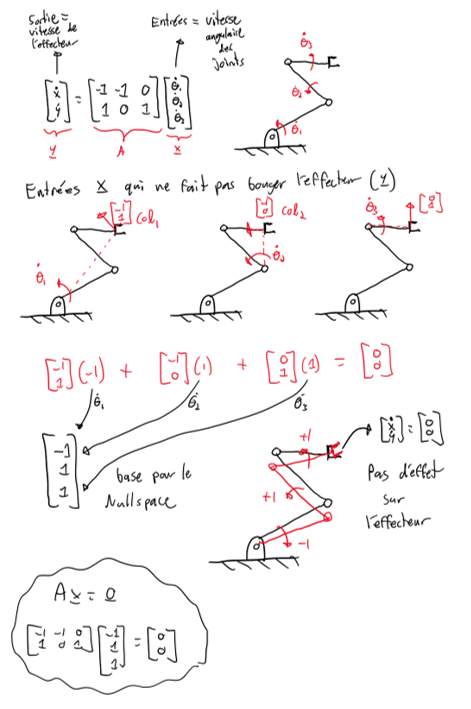 Sortie = vitesse de l'effecteur
Entrées = vitesse angulaire des joints
[ẋ ẏ] = [-1 -1 0; 1 0 1] [θ̇₁ θ̇₂ θ̇₃]
y A x
θ̇₃
θ̇₂
θ̇₁
Entrées x qui ne fait pas bouger l'effecteur (y)
[-1 1] col₁
[-1 0] col₂
[0 1]
θ̇₁
θ̇₂
θ̇₃
[-1 1](-1) + [-1 0](1) + [0 1](1) = [0 0]
θ̇₁ θ̇₂ θ̇₃
[-1 1 1]
base pour le
Nullspace
+1
+1
-1
[ẋ ẏ] = [0 0]
Pas d'effet
sur
l'effecteur
Ax = 0
[-1 -1 0; 1 0 1] [-1 1 1] = [0 0]